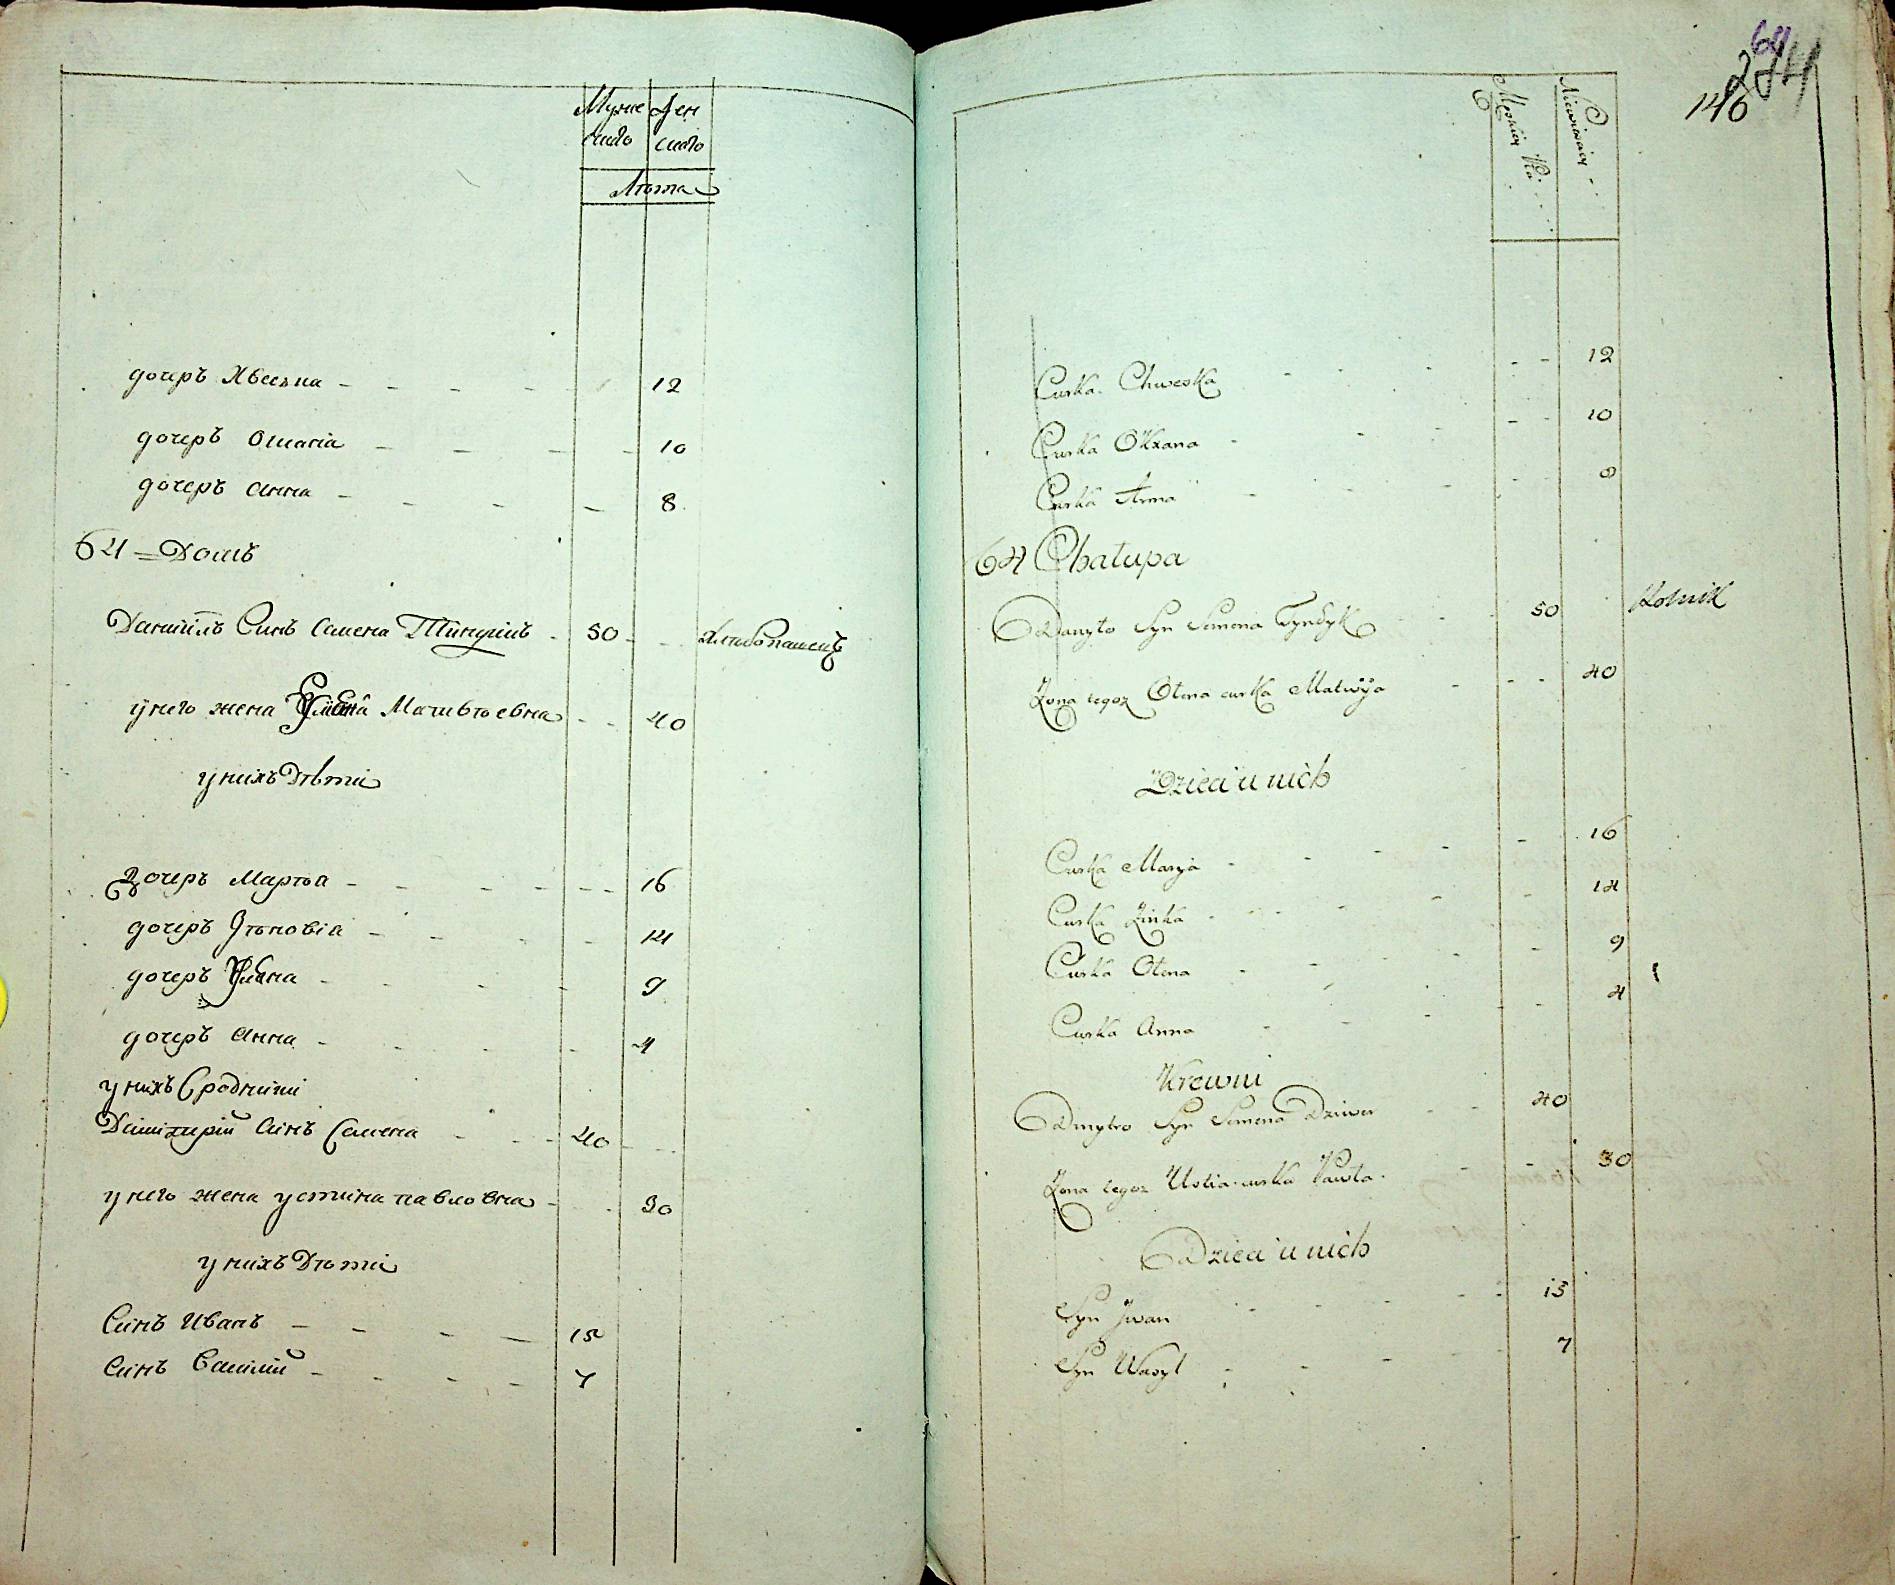 Муже Жен
скаго скаго
Лѣта
дочерь Хвеска - - - - 12
дочерь Оксана - - - - 10
дочерь Анна - - - - 8
64 = Домъ
Данiилъ Синъ Самена - 50 - - хлебопашецъ
у него жена Матвѣевна - - 40
у нихъ Дѣти
Дочерь Марѣа - - - - 16
дочерь Зѣновiа - - - - 14
дочерь - - - - 9
дочерь Анна - - - - 4
у нихъ Сродники
Димитрiй Синъ Семена - - - 40 - -
у него жена устина павловна - - 30
у нихъ Дѣти
Синъ Иванъ - - - - 15
Синъ Василiй - - - - 7
64
274
146
Męskiey Płci
Niewieściey
Curka Chweska - - - - 12
Curka Oxana - - - - 10
Curka Anna - - - - 8
64 Chałupa
Danyło Syn Semena Tyndyk - - - 50 Rolnik
Żona tegoż Ołena curka Matwija - - - 40
Dzieci u nich
Curka Marya - - - - 16
Curka Zinka - - - - 14
Curka Ołena - - - - 9
Curka Anna - - - - 4
Krewni
Dmytro Syn Semena - - 40
Żona tegoż Ustia curka Pawła - - 30
Dzieci u nich
Syn Jwan - - - - 15
Syn Wasyl - - - - 7